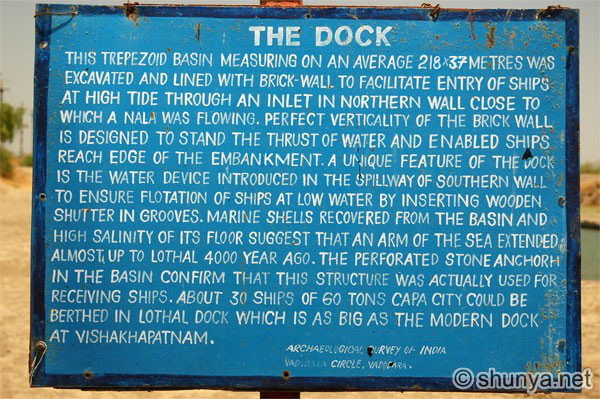 THE DOCK
THIS TREPEZOID BASIN MEASURING ON AN AVERAGE 218×37 METRES WAS
EXCAVATED AND LINED WITH BRICK-WALL TO FACILITATE ENTRY OF SHIPS
AT HIGH TIDE THROUGH AN INLET IN NORTHERN WALL CLOSE TO
WHICH A NALA WAS FLOWING. PERFECT VERTICALITY OF THE BRICK WALL
IS DESIGNED TO STAND THE THRUST OF WATER AND ENABLED SHIPS
REACH EDGE OF THE EMBANKMENT. A UNIQUE FEATURE OF THE DOCK
IS THE WATER DEVICE INTRODUCED IN THE SPILLWAY OF SOUTHERN WALL
TO ENSURE FLOTATION OF SHIPS AT LOW WATER BY INSERTING WOODEN
SHUTTER IN GROOVES. MARINE SHELLS RECOVERED FROM THE BASIN AND
HIGH SALINITY OF ITS FLOOR SUGGEST THAT AN ARM OF THE SEA EXTENDED
ALMOST UP TO LOTHAL 4000 YEAR AGO. THE PERFORATED STONE ANCHORH
IN THE BASIN CONFIRM THAT THIS STRUCTURE WAS ACTUALLY USED FOR
RECEIVING SHIPS. ABOUT 30 SHIPS OF 60 TONS CAPA CITY COULD BE
BERTHED IN LOTHAL DOCK WHICH IS AS BIG AS THE MODERN DOCK
AT VISHAKHAPATNAM.
ARCHAEOLOGICAL SURVEY OF INDIA
CIRCLE,
©shunya.net